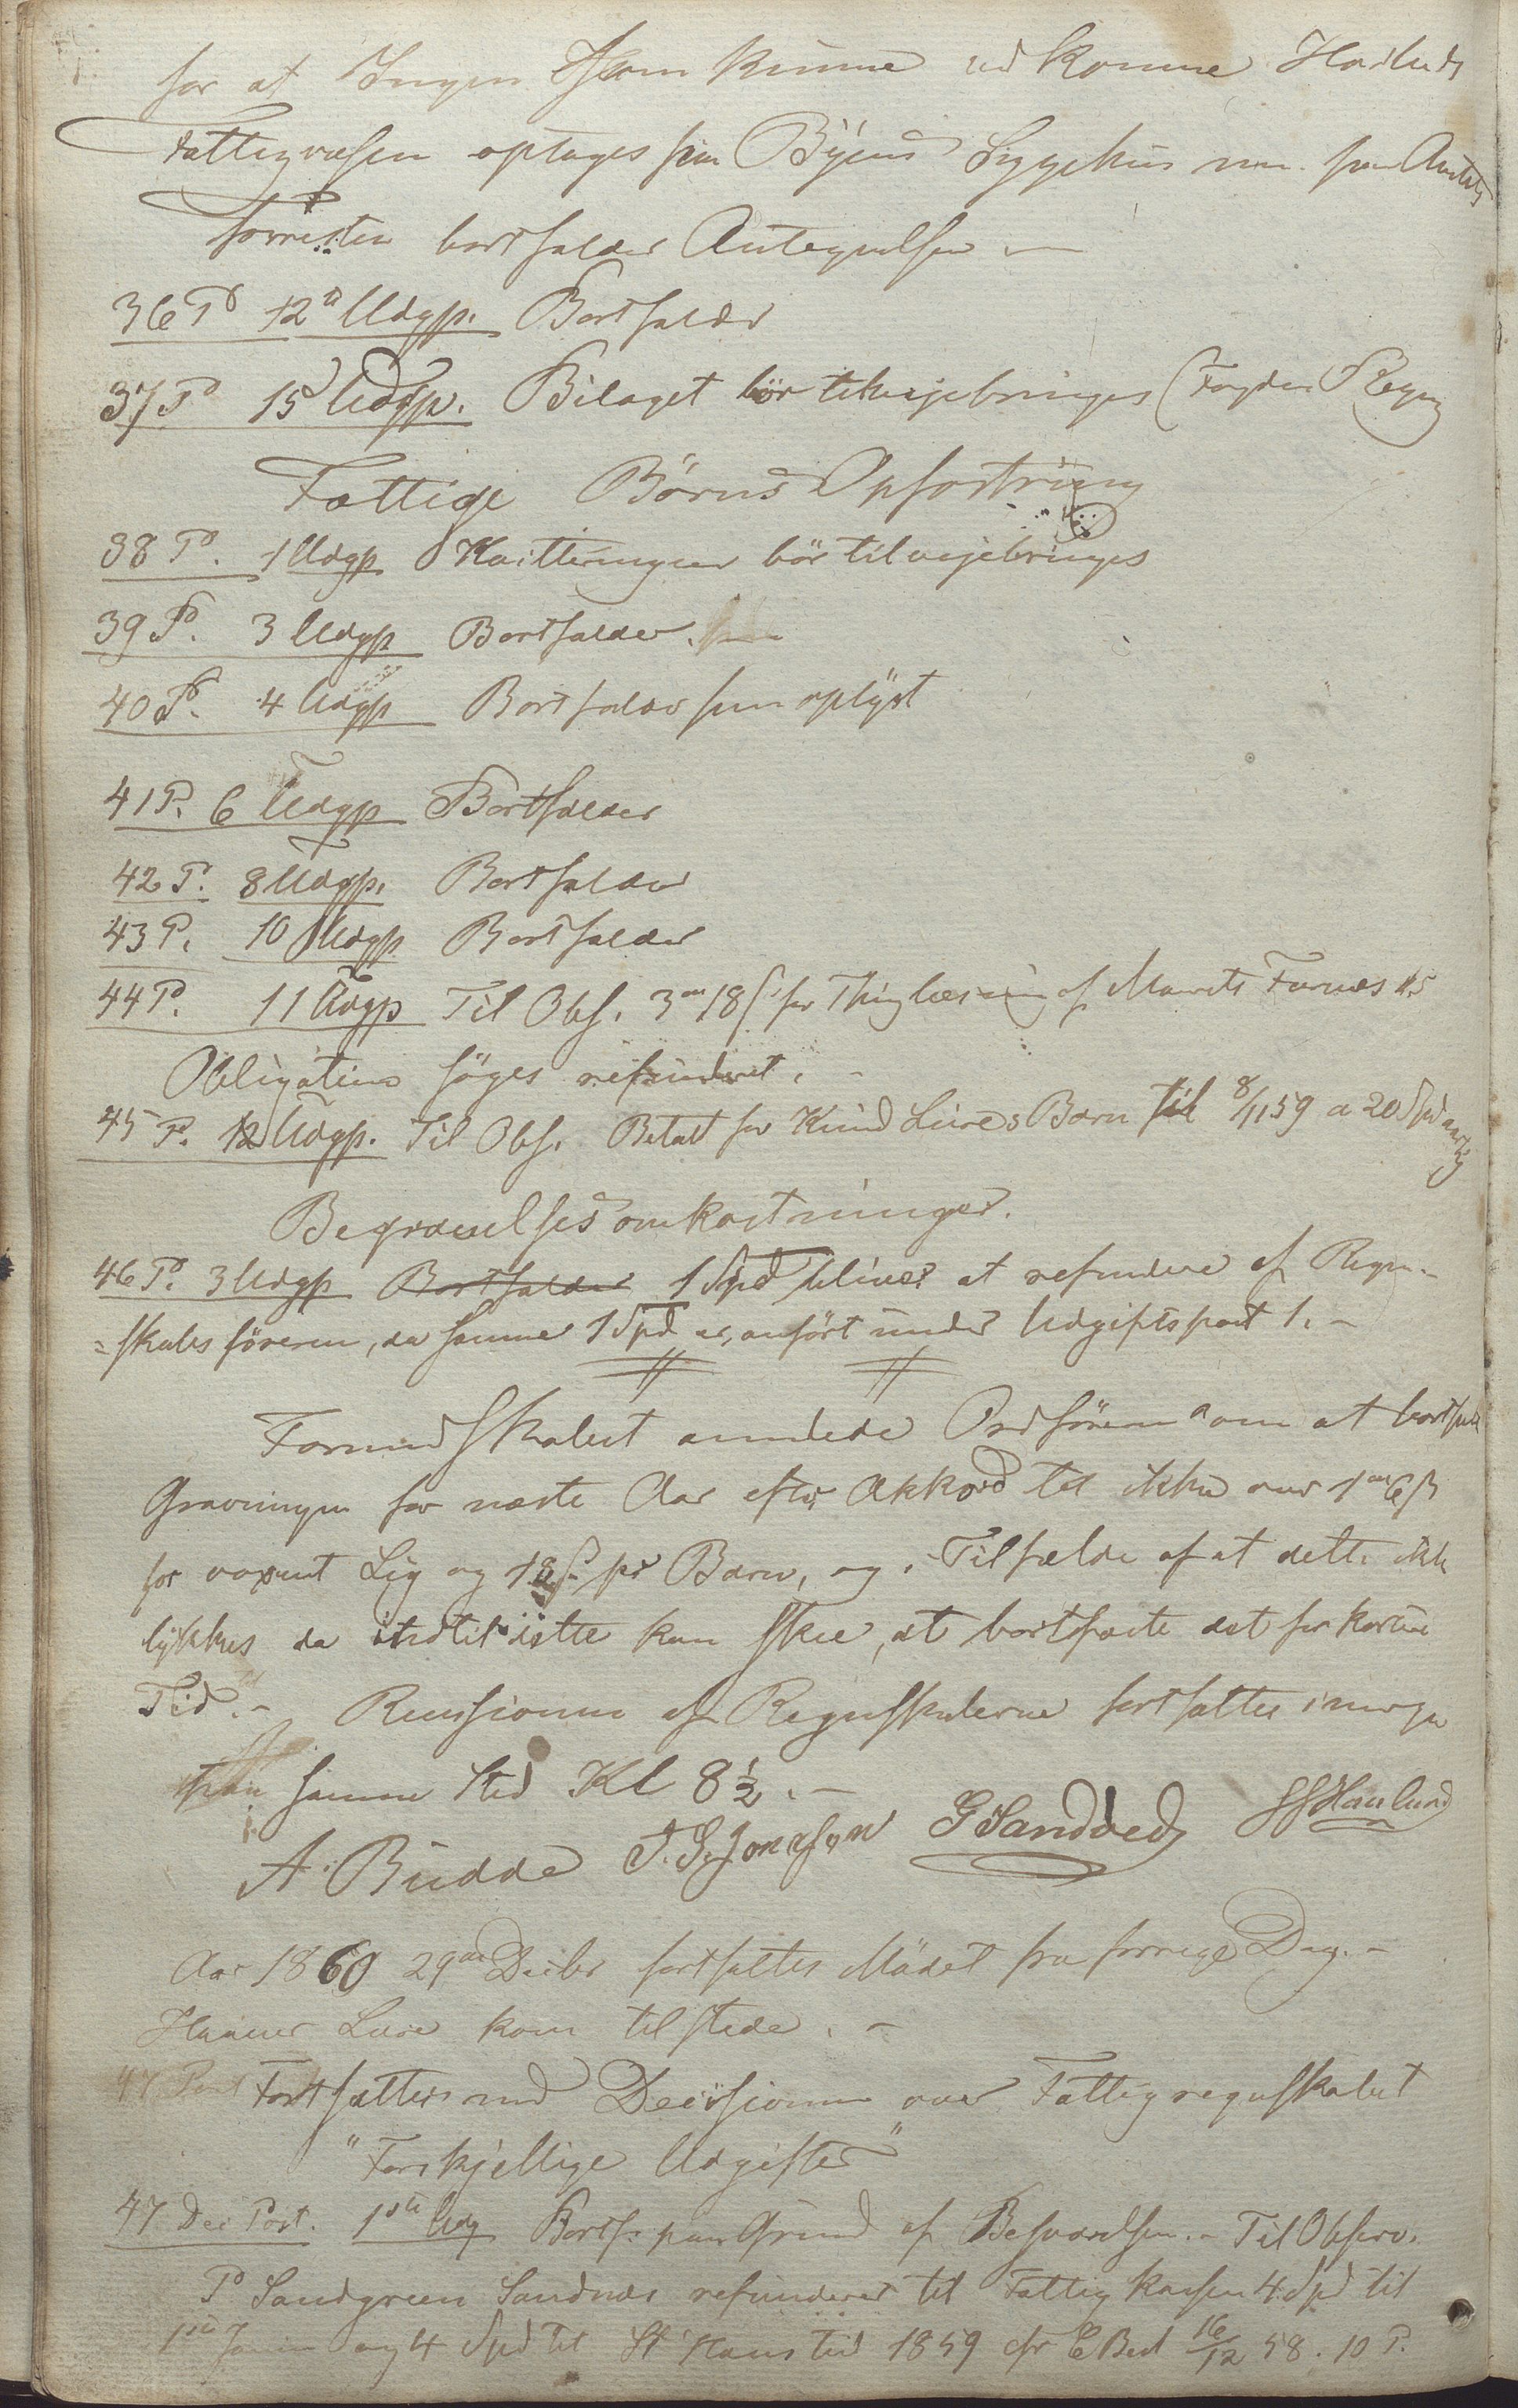 for at Ingen som kunne komme Høilands
Fattigvæsen optages paa Byens Sygehus men paa Amtets
forresten bortfalder Antegnelsen. —
36 P 12te Udgp. Bortfalder
37 P 15 Udgp. Bilaget bör tilveiebringes (Fogdens Regng
Fattige Börns Opfostring
38 P. 1 Udgp Kvitteringen bör tilvejebringes
39 P. 3 Udgp Bortfalder.
40 P. 4 Udgp Bortfalder som oplÿst
41 P. 6 Udgp Bortfalder
42 P. 8 Udgp. Bortfalder
43 P. 10 Udgp Bortfalder
44 P. 11 Udgp Til Obs. 3 ort 18 s for Thinglæsning af Mourits Furnæs's
Obligation söges refunderet. -
45 P. 12 Udgp. Til Obs. Betalt for Knud Lures Barn til 8/11 59 a 20 Spd aarlig
Begravelsesomkostninger.
46 P. 3 Udgp Bortfalder 1 Spd bliver at refundere af Regn-
=skabsföreren, da samme 1 Spd er anfört under Udgiftspost 1. -
Formandskabet anmodede Ordföreren om at bortsætte
Gravningen for næste Aar efter Akkord til ikke over 1 ort 6 s
for voxent Lig og 18 s pr Barn, og i Tilfælde af at dette ikke
lÿkkes da indtil dette kan skee, at bortsætte det for kortere
Tid. - Revisionen af Regnskaberne fortsættes imorgen
paa samme Sted Kl 8½. -
A. Budde T. G. Jonassen G Sandved Haaland
Aar 1860 29de Decbr fortsattes Mödet fra forrige Dag. -
Lure kom tilstede. -
47 Post Fortsattes med Decisionen over Fattigregnskabet
"Forskjellige Udgifter"
47 Dec Post. 1ste Udg Bortf. paa Grund af Besvarelsen. - Til Observ.
P Sandgreen Sandnæs refunderer til Fattigkassen 4 Spd til
og 4 Spd til St Hans tid 1859 cfr E Bed 16/12 58. 10 P.